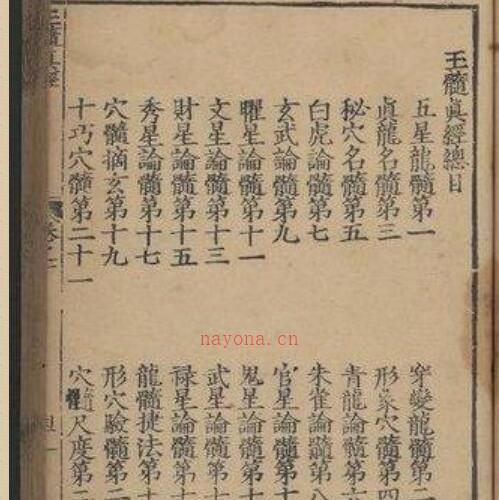 玉髓眞經總目
五星龍髓第一 穿變龍髓第二
眞龍名髓第三 形象穴髓第四
秘穴名髓第五 青龍論髓第六
白虎論髓第七 朱雀論髓第八
玄武論髓第九 官星論髓第十
曜星論髓第十一 鬼星論髓第十
文星論髓第十三 武星論髓第十
財星論髓第十五 禄星論髓第十
秀星論髓第十七 龍髓捷法第十
穴髓摘玄第十九 形穴驗髓第二
十巧穴髓第二十一 穴髓尺度第二
nayona.cn